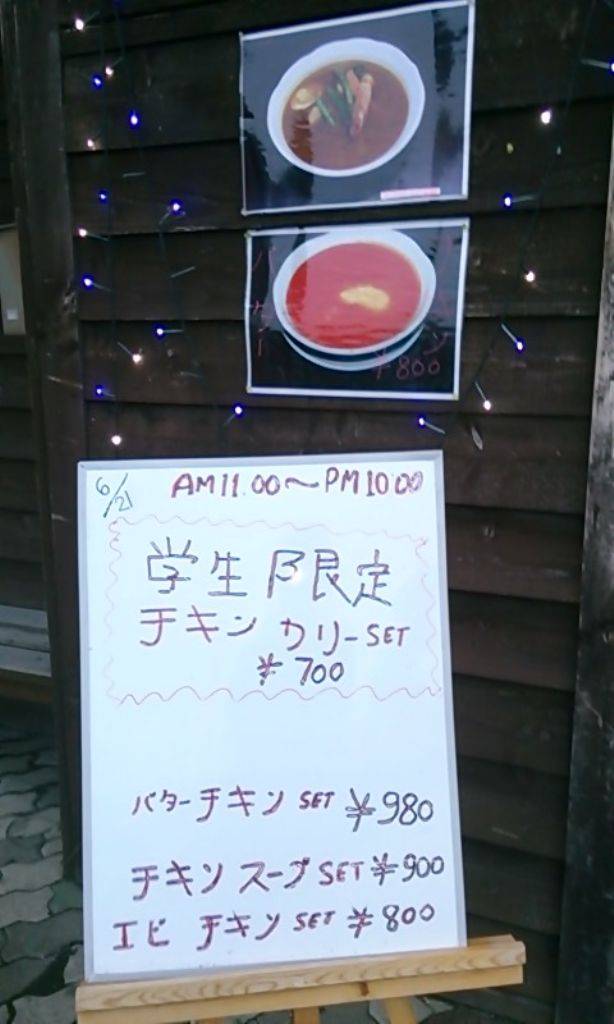 ¥800
6/21
AM11.00〜PM10.00
学生限定
チキン カリーSET
¥700
バターチキン SET ¥980
チキン スープSET ¥900
エビ チキン SET ¥800